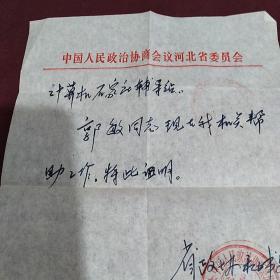 中国人民政治协商会议河北省委员会
计算机石家庄辅导站:
郭敏同志现在我机关帮
助工作,特此证明。
省政协